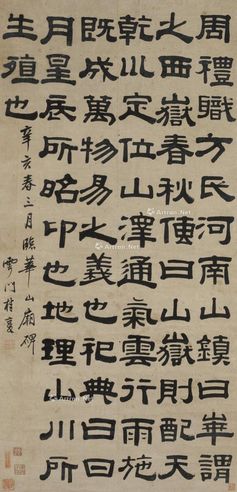 周禮職方氏河南山鎮曰崋謂
之西嶽春秋傳曰山嶽則配天
乾川定位山澤通氣雲行雨施
既成萬物易之義也祀典曰日
月星辰所昭卬也地理山川所
生殖也
辛亥春三月臨華山廟碑
雩門桂馥